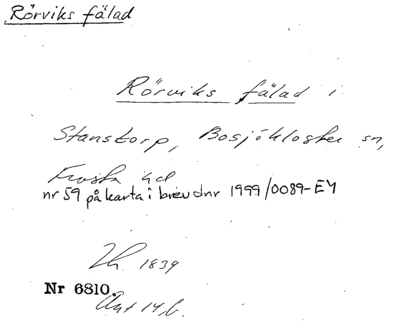 Rörviks fälad
Rörviks fälad i
Stanstorp, Bosjökloster sn,
Frosta hd
nr 59 på karta i brev dnr 1999/0089-EM
1839
Nr 6810.
Akt 14 b.